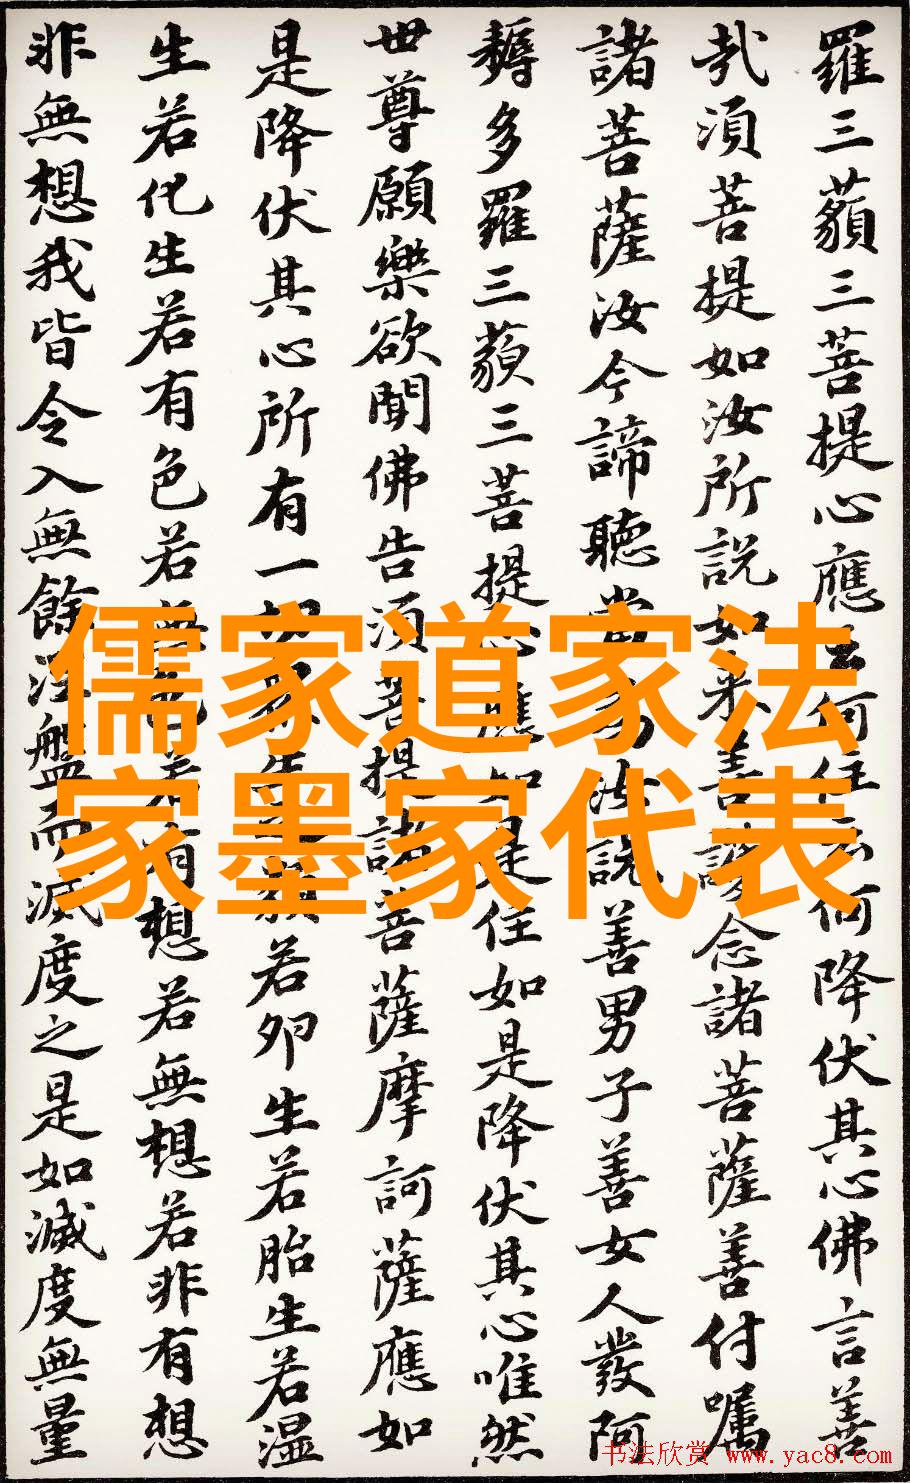 羅三藐三菩提心應云何住云何降伏其心佛言善
哉須菩提如汝所說如来善護念諸菩薩善付囑
諸菩薩汝今諦聽當為汝說善男子善女人發阿
耨多羅三藐三菩提心應如是住如是降伏其心唯然
世尊願樂欲聞佛告須菩提諸菩薩摩訶薩應如
是降伏其心所有一切眾生之類若卵生若胎生若湿
生若化生若有色若無色若有想若無想若非有想
非無想我皆令入無餘涅盤而滅度之是如滅度無量
儒家道家法
家墨家代表
书法欣赏 www.yac8.com